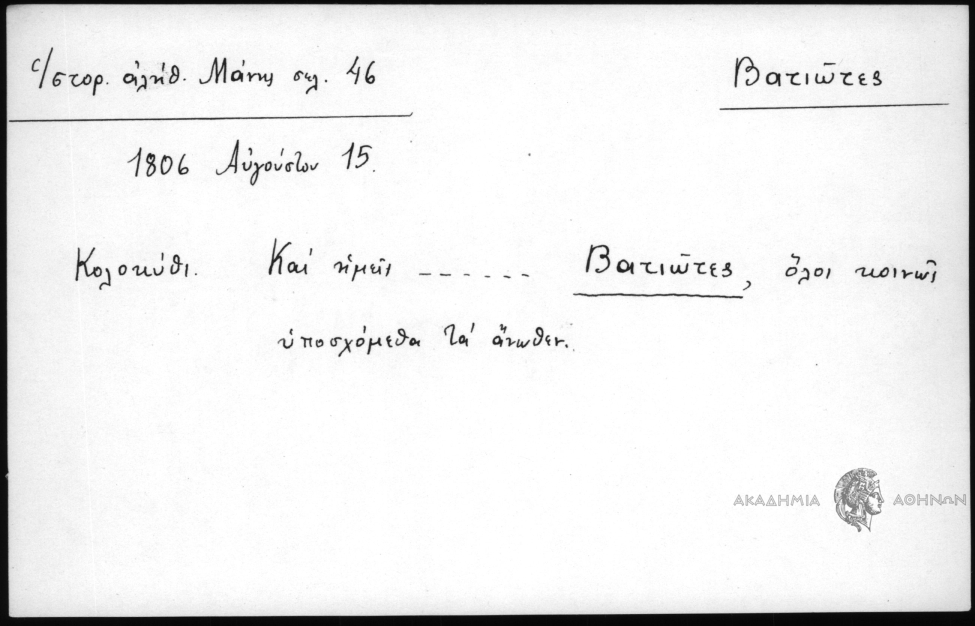 Ἱστορ. ἀλήθ. Μάνης σελ. 46
Βατιῶτες
1806 Αὐγούστου 15.
Κολοκύθι. Καί ἡμεῖς ------ Βατιῶτες, ὅλοι κοινῶς
ὑποσχόμεθα τά ἄνωθεν.
ΑΚΑΔΗΜΙΑ ΑΘΗΝΩΝ